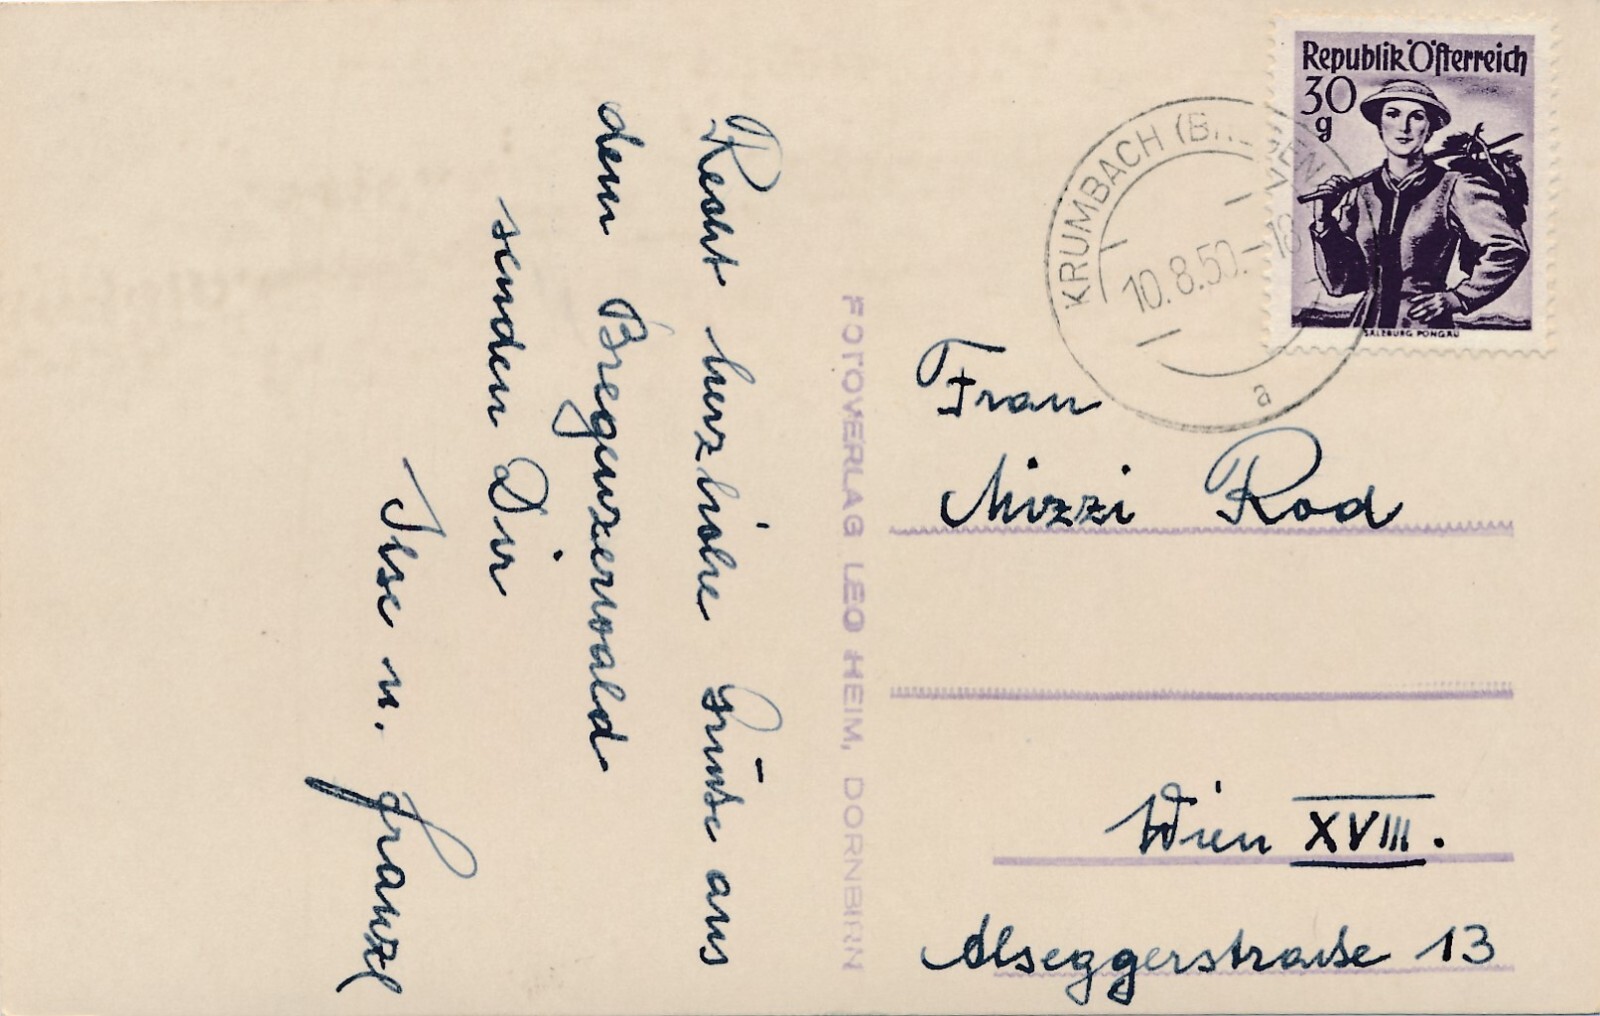 Recht herzliche Grüsse aus
dem Bregenzerwald
senden Dir
Ilse u. Franzl
FOTOVERLAG LEO HEIM, DORNBIRN
Republik Österreich
30
g
SALZBURG PONGAU
KRUMBACH
10.8.50.-18
a
Frau
Mizzi Rod
Wien XVIII.
Alseggerstraße 13